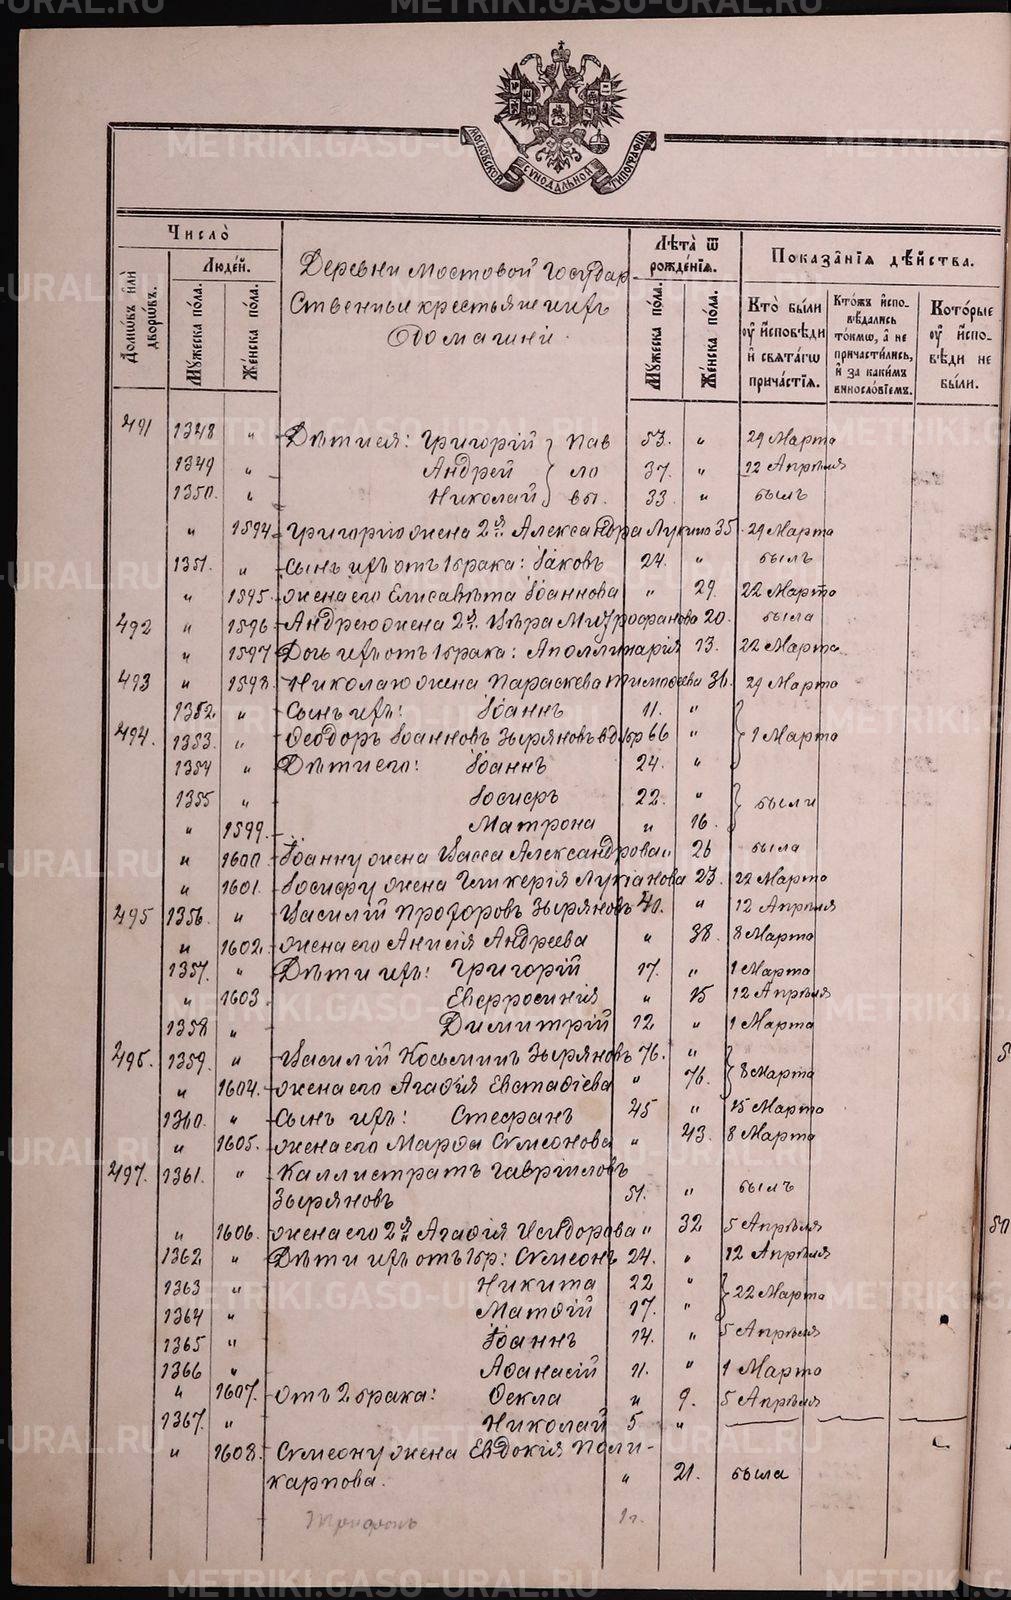 МОСКОВСКОЙ СѴНОДАЛЬНОЙ ТИПОГРАФІИ
Число̀
Людей.
Домѡвъ или дворѡвъ.
Мꙋжеска пола.
Женска пола.
Деревни Мостовой Государ
ственные крестьяне и ихъ
домашніе.
Лѣта̀ ѿ рожденія.
Мꙋжеска пола.
Женска пола.
Показанія дѣйства.
Кто̀ были ᲂу҆ исповѣди и свѧтагѡ причастія.
Ктожъ исповѣдались токмѡ, а не причастились, и за какимъ винословіемъ.
Которые ᲂу҆ исповѣди не были.
491 1348 " Дѣти ея: Григорій } Пав 53. " 29 Марта
1349 " Андрей } ло 37. " 12 Апрѣля
1350. " Николай } вы. 33. " былъ
" 1594 Григорію жена 2я Александра Лукина 35. 29 Марта
1351. " Сынъ ихъ отъ 1 брака: Іаковъ 24. " былъ
" 1595. жена его Елисавета Іоаннова " 29. 22 Марта
492 " 1596 Андрею жена 2я. Вѣра Митрофанова 20. была
" 1597 Дочь ихъ отъ 1 брака: Аполлинарія 13. 22 Марта
493 " 1598. Николаю жена Параскева Тимоѳеева 36. 29 Марта
1352. " Сынъ ихъ: Іоаннъ 11. "
494. 1353. " Ѳеодоръ Іоанновъ Зыряновъ вдовъ 66 " } 1 Марта
1354 " Дѣти его: Іоаннъ 24. "
1355 " Іосифъ 22. " } были
" 1599. Матрона " 16.
" 1600. Іоанну жена Васса Александрова " 26 была
" 1601. Іосифу жена Гликерія Лукіанова 23. 22 Марта
495 1356. " Василій Прохоровъ Зыряновъ 40. " 12 Апрѣля
" 1602. жена его Анисія Андреева " 38. 8 Марта
1357. " Дѣти ихъ: Григорій 17. " 1 Марта
" 1603 Евфросинія " 15 12 Апрѣля
1358 " Димитрій 12 " 1 Марта
496. 1359. " Василій Косьминъ Зыряновъ 76. " } 8 Марта
" 1604. жена его Агафія Евстафіева " 76.
1360. " Сынъ ихъ: Стефанъ 45 " 15 Марта
" 1605. жена его Марѳа Сѵмеонова " 43. 8 Марта
497. 1361. " Каллистратъ Гавріиловъ
Зыряновъ 51. " былъ
" 1606. жена его 2я Агафія Исидорова " 32 5 Апрѣля
1362 " Дѣти ихъ отъ 1 бр: Сѵмеонъ 24. " 12 Апрѣля
1363 " Никита 22 " } 22 Марта
1364 " Матѳій 17. "
1365 " Іоаннъ 14. " 5 Апрѣля
1366 " Аѳанасій 11. " 1 Марта
" 1607. отъ 2 брака: Ѳекла " 9. 5 Апрѣля
1367. " Николай 5 "
" 1608. Сѵмеону жена Евдокія Поли-
карпова. " 21. была
Трифонъ 1 г.
METRIKI.GASO-URAL.RU